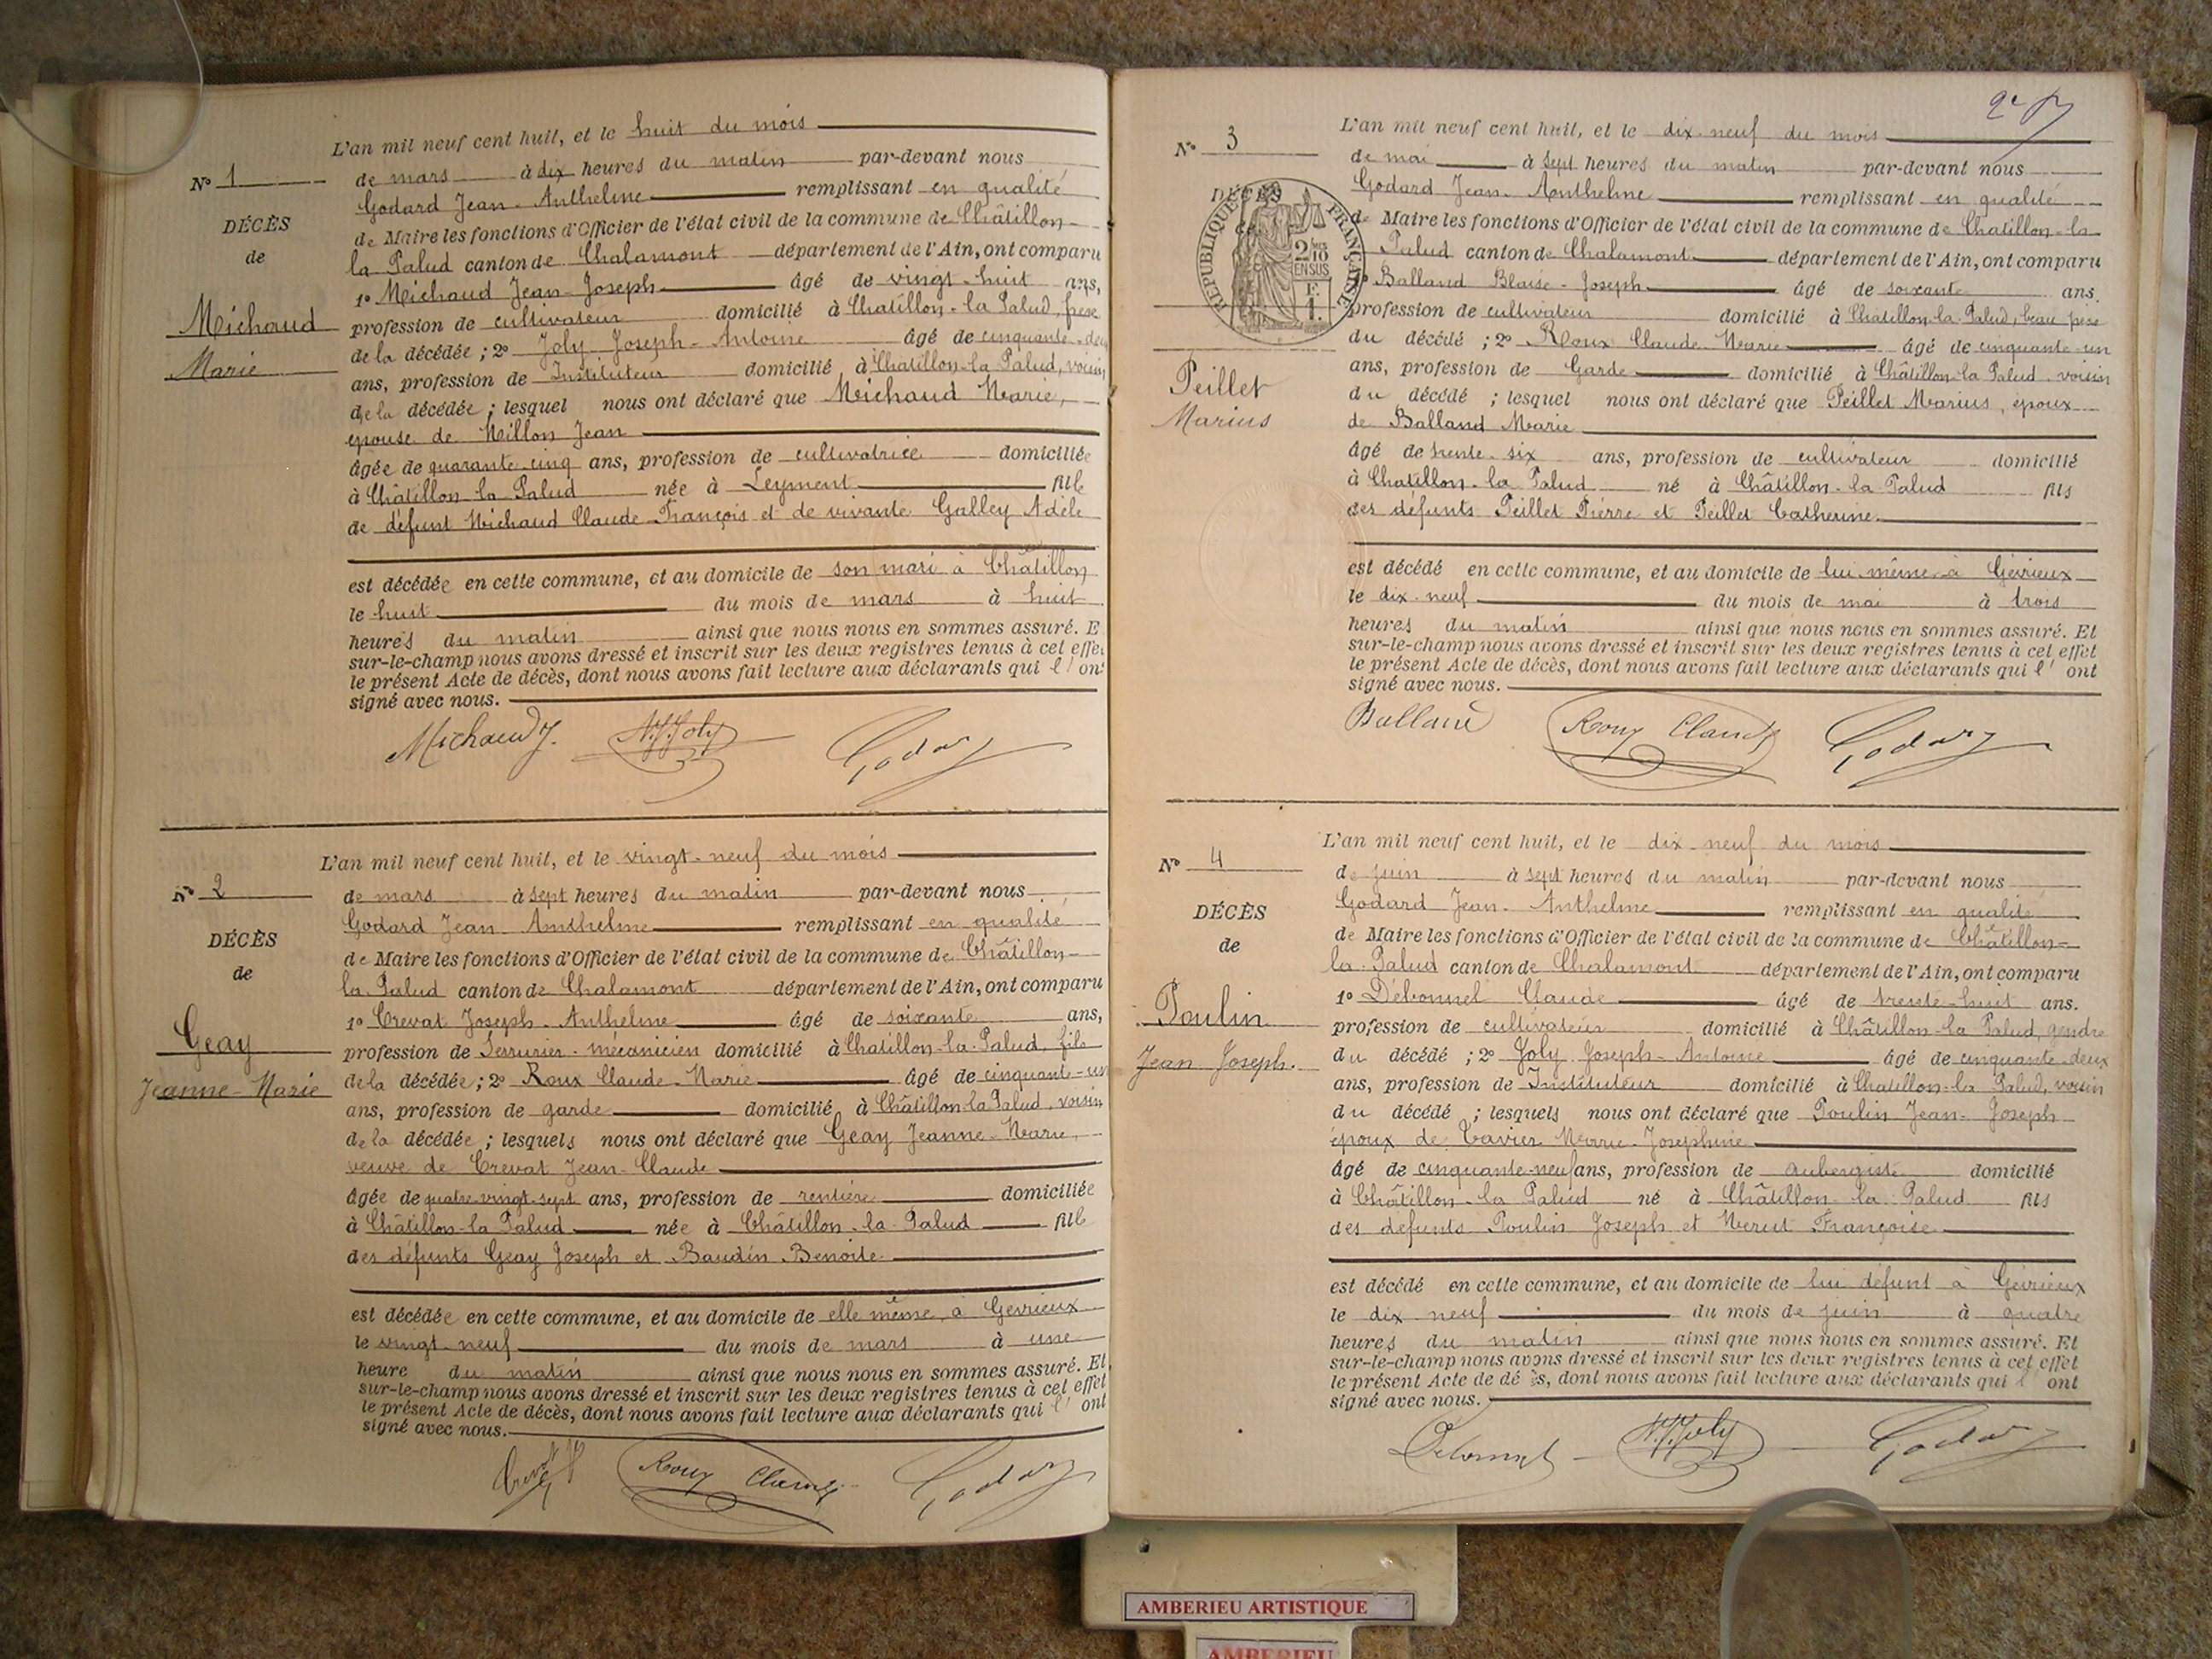 L'an mil neuf cent huit, et le huit du mois
N° 1
de mars à dix heures du matin par-devant nous
Godard Jean-Anthelme remplissant en qualité
DÉCÈS
de Maire les fonctions d'Officier de l'état civil de la commune de Châtillon-
de
la Palud canton de Chalamont département de l'Ain, ont comparu
1° Michaud Jean-Joseph âgé de vingt-huit ans,
Michaud
profession de cultivateur domicilié à Chatillon-la Palud, frère
Marie
de la décédée ; 2° Joly Joseph-Antoine âgé de cinquante-deux
ans, profession de Instituteur domicilié à Chatillon-la Palud, voisin
de la décédée ; lesquel nous ont déclaré que Michaud Marie,
épouse de Millon Jean
âgée de quarante cinq ans, profession de cultivatrice domiciliée
à Châtillon la Palud née à Leyment fille
de défunt Michaud Claude-François et de vivante Galley Adèle
est décédée en cette commune, et au domicile de son mari à Châtillon
le huit du mois de mars à huit
heures du matin ainsi que nous nous en sommes assuré. E
sur-le-champ nous avons dressé et inscrit sur les deux registres tenus à cet effet
le présent Acte de décès, dont nous avons fait lecture aux déclarants qui l' ont
signé avec nous.
Michaud J. N.J. Joly Godard
L'an mil neuf cent huit, et le vingt-neuf du mois
N° 2
de mars à sept heures du matin par-devant nous
Godard Jean-Anthelme remplissant en qualité
DÉCÈS
de Maire les fonctions d'Officier de l'état civil de la commune de Châtillon-
de
la Palud canton de Chalamont département de l'Ain, ont comparu
1° Crevat Joseph-Anthelme âgé de soixante ans,
Geay
profession de Serrurier-mécanicien domicilié à Chatillon-la-Palud, fils
Jeanne-Marie
de la décédée ; 2° Roux Claude-Marie âgé de cinquante-un
ans, profession de garde domicilié à Châtillon-la Palud, voisin
de la décédée ; lesquels nous ont déclaré que Geay Jeanne-Marie,
veuve de Crevat Jean-Claude
âgée de quatre-vingt-sept ans, profession de rentière domiciliée
à Châtillon-la Palud née à Châtillon-la-Palud fille
des défunts Geay Joseph et Baudin Benoite
est décédée en cette commune, et au domicile de elle même, à Gevrieux
le vingt-neuf du mois de mars à une
heure du matin ainsi que nous nous en sommes assuré. Et
sur-le-champ nous avons dressé et inscrit sur les deux registres tenus à cet effet
le présent Acte de décès, dont nous avons fait lecture aux déclarants qui l' ont
signé avec nous.
Crevat Roux Claude Godard
L'an mil neuf cent huit, et le dix-neuf du mois
N° 3
de mai à sept heures du matin par-devant nous
Godard Jean-Anthelme remplissant en qualité
DÉCÈS
RÉPUBLIQUE FRANÇAISE
2/10 EN SUS
de Maire les fonctions d'Officier de l'état civil de la commune de Chatillon-la
Palud canton de Chalamont département de l'Ain, ont comparu
Balland Blaise-Joseph âgé de soixante ans.
profession de cultivateur domicilié à Châtillon-la-Palud, beau père
du décédé ; 2° Roux Claude-Marie âgé de cinquante-un
Peillet
ans, profession de Garde domicilié à Châtillon-la Palud, voisin
Marius
du décédé ; lesquel nous ont déclaré que Peillet Marius, époux
de Balland Marie
âgé de trente-six ans, profession de cultivateur domicilié
à Chatillon-la Palud né à Châtillon-la-Palud fils
des défunts Peillet Pierre et Peillet Catherine
est décédé en cette commune, et au domicile de lui-même à Gévrieux
le dix-neuf du mois de mai à trois
heures du matin ainsi que nous nous en sommes assuré. Et
sur-le-champ nous avons dressé et inscrit sur les deux registres tenus à cet effet
le présent Acte de décès, dont nous avons fait lecture aux déclarants qui l' ont
signé avec nous.
Balland Roux Claude Godard
L'an mil neuf cent huit, et le dix-neuf du mois
N° 4
de juin à sept heures du matin par-devant nous
Godard Jean-Anthelme remplissant en qualité
DÉCÈS
de Maire les fonctions d'Officier de l'état civil de la commune de Châtillon-
de
la-Palud canton de Chalamont département de l'Ain, ont comparu
1° Débonnel Claude âgé de trente-huit ans.
Poulin
profession de cultivateur domicilié à Châtillon-la Palud, gendre
Jean Joseph.
du décédé ; 2° Joly Joseph-Antoine âgé de cinquante-deux
ans, profession de Instituteur domicilié à Chatillon-la Palud, voisin
du décédé ; lesquels nous ont déclaré que Poulin Jean-Joseph
époux de Tavier Marie-Josephine
âgé de cinquante-neuf ans, profession de aubergiste domicilié
à Châtillon-la Palud né à Châtillon-la Palud fils
des défunts Poulin Joseph et Françoise
est décédé en cette commune, et au domicile de lui défunt à Gévrieux
le dix neuf du mois de juin à quatre
heures du matin ainsi que nous nous en sommes assuré. Et
sur-le-champ nous avons dressé et inscrit sur les deux registres tenus à cet effet
le présent Acte de dé ès, dont nous avons fait lecture aux déclarants qui l' ont
signé avec nous.
Débonnel N.J. Joly Godard
AMBERIEU ARTISTIQUE
AMBERIEU